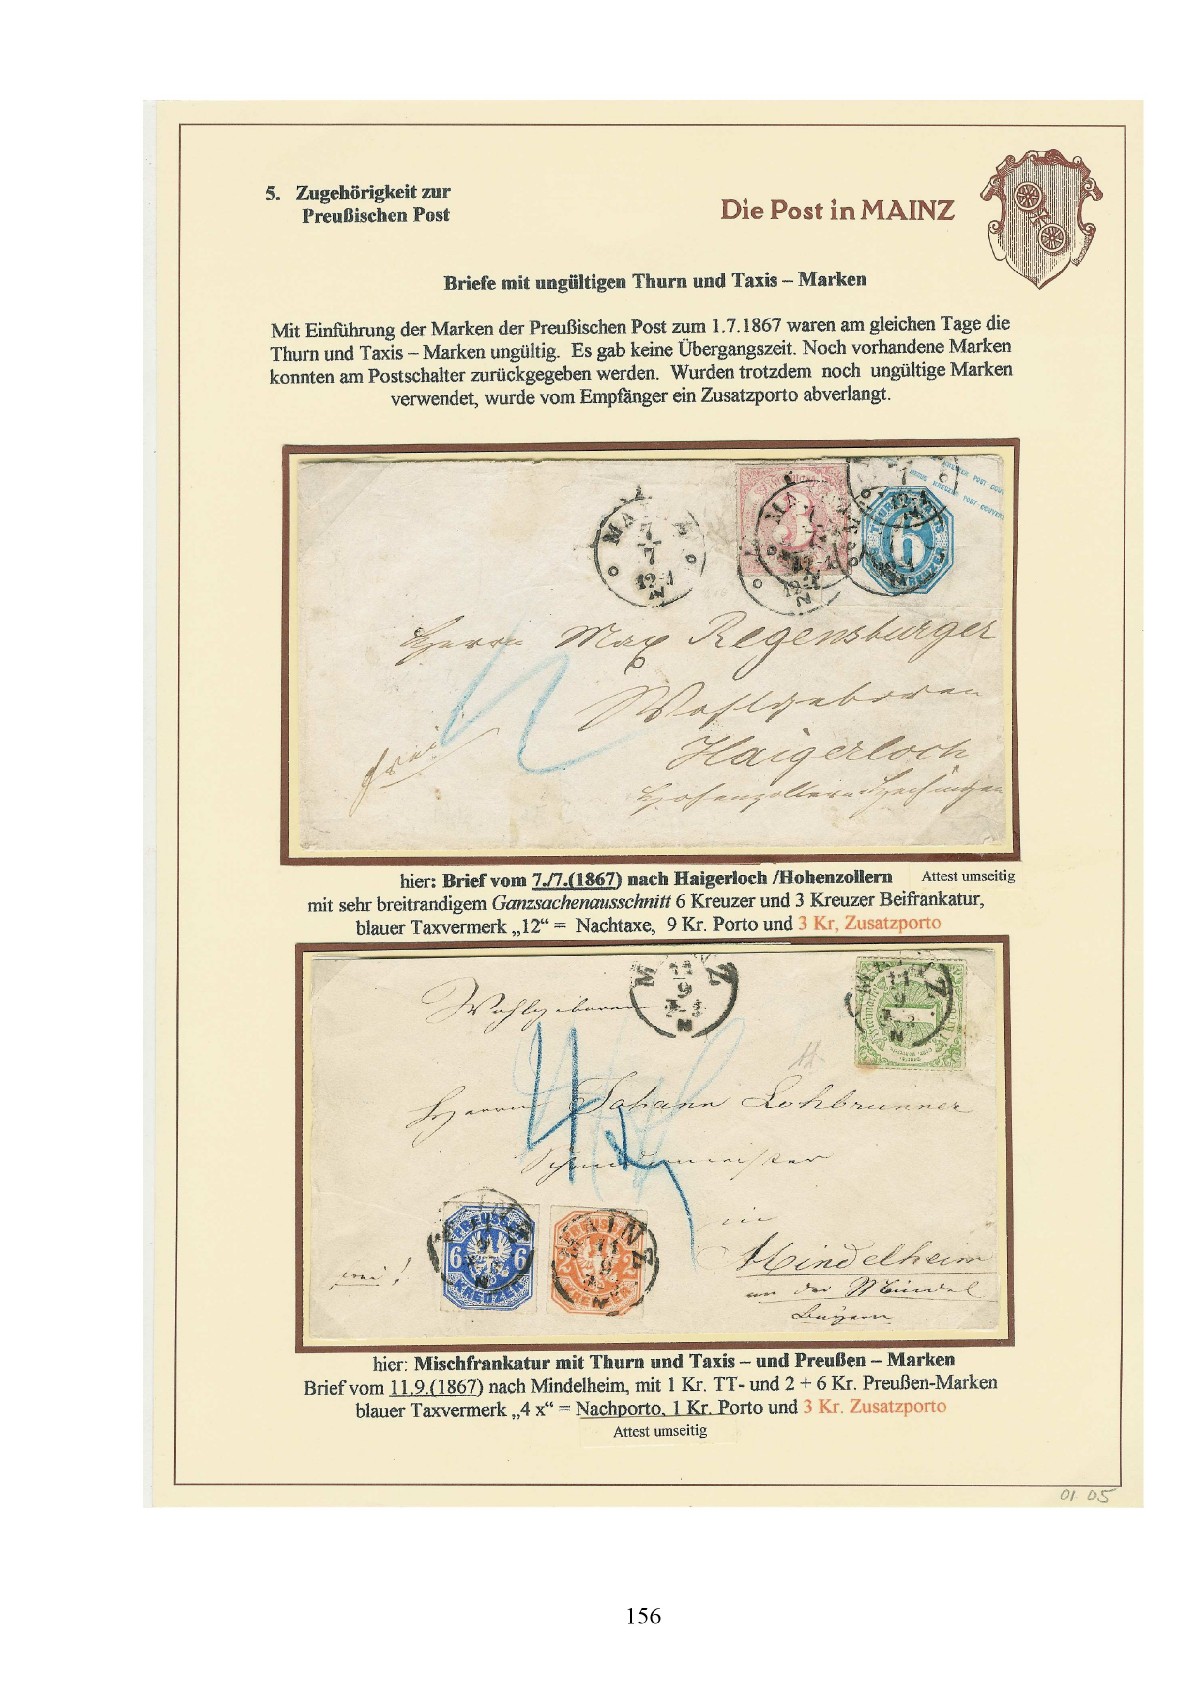 5. Zugehörigkeit zur
Preußischen Post
Die Post in MAINZ
Briefe mit ungültigen Thurn und Taxis – Marken
Mit Einführung der Marken der Preußischen Post zum 1.7.1867 waren am gleichen Tage die
Thurn und Taxis – Marken ungültig. Es gab keine Übergangszeit. Noch vorhandene Marken
konnten am Postschalter zurückgegeben werden. Wurden trotzdem noch ungültige Marken
verwendet, wurde vom Empfänger ein Zusatzporto abverlangt.
MAINZ
7
7
12-1
N
3
6
Herrn Max Regensburger
Wohlgeboren
Haigerloch
Hohenzollern Hechingen
frei
12
hier: Brief vom 7./7.(1867) nach Haigerloch /Hohenzollern Attest umseitig
mit sehr breitrandigem Ganzsachenausschnitt 6 Kreuzer und 3 Kreuzer Beifrankatur,
blauer Taxvermerk „12“ = Nachtaxe, 9 Kr. Porto und 3 Kr, Zusatzporto
MAINZ
11
9
N
1
Wohlgeboren
Herrn Johann Lohbrunner
in
Mindelheim
an der Mindel
Bayern
4x
PREUSSEN
6 6
KREUZER
PREUSSEN
2 2
KREUZER
hier: Mischfrankatur mit Thurn und Taxis – und Preußen – Marken
Brief vom 11.9.(1867) nach Mindelheim, mit 1 Kr. TT- und 2 + 6 Kr. Preußen-Marken
blauer Taxvermerk „4 x“ = Nachporto, 1 Kr. Porto und 3 Kr. Zusatzporto
Attest umseitig
01 05
156